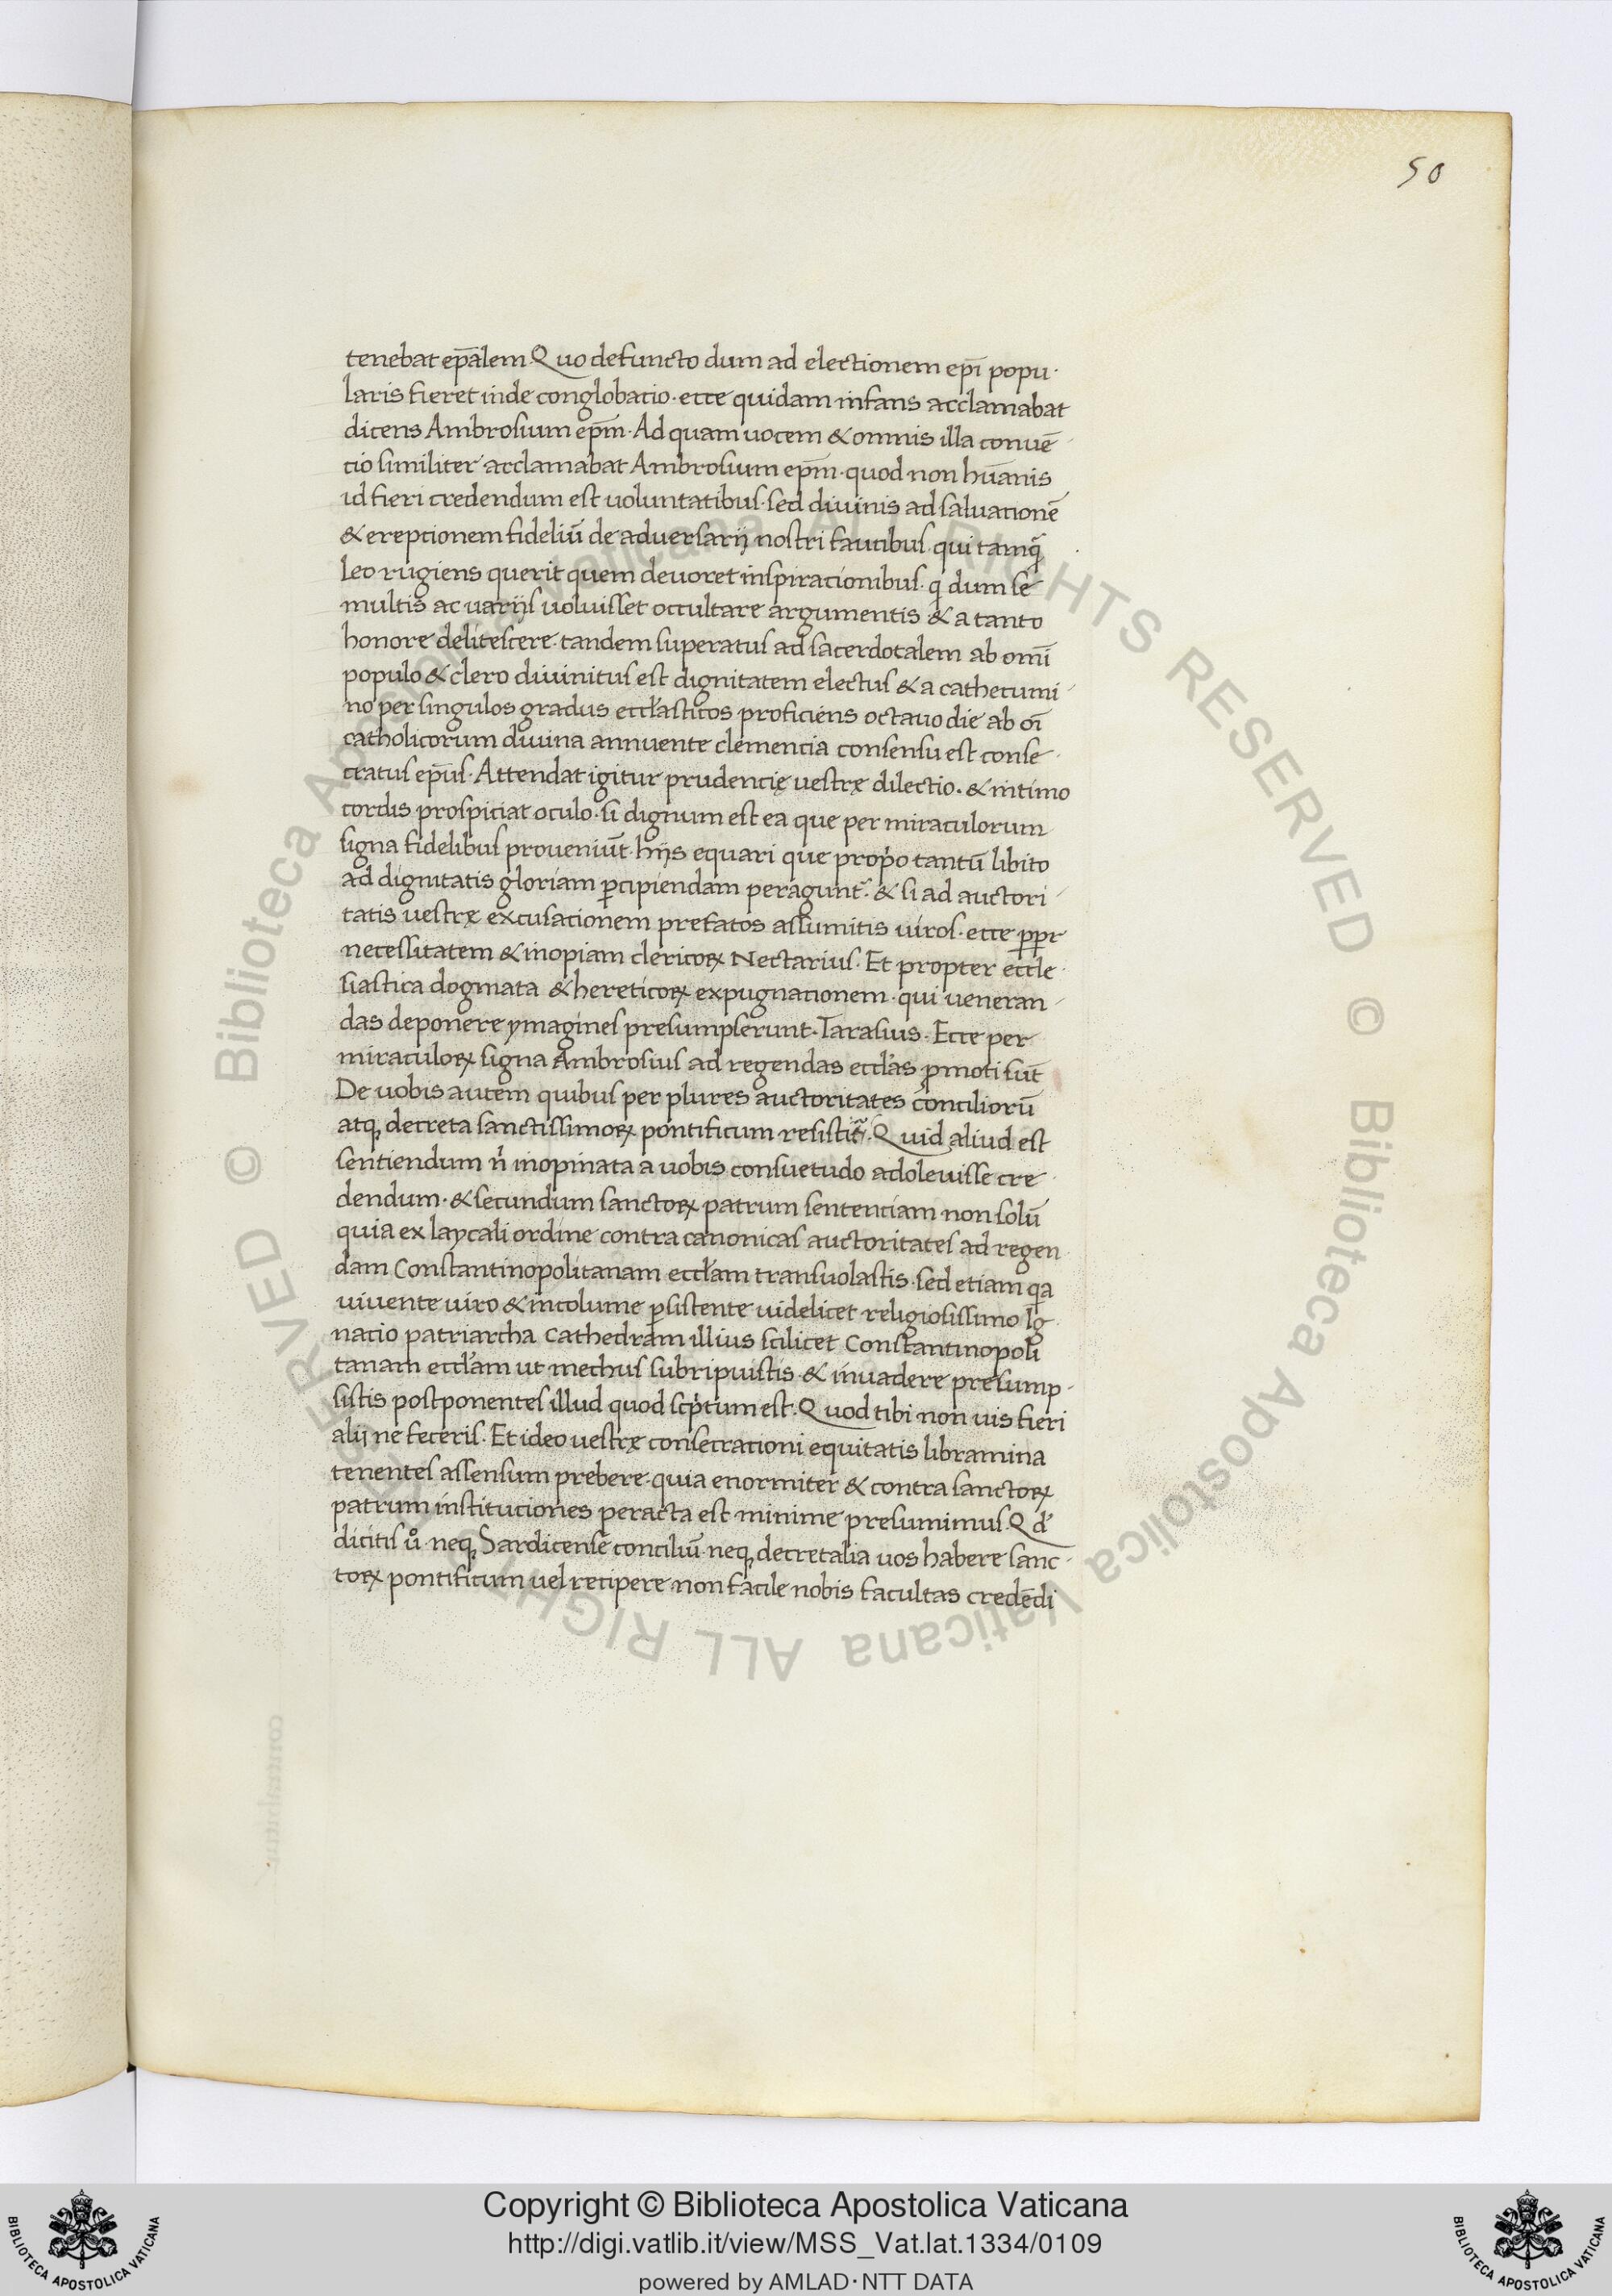 50
tenebat ep̄alem. Quo defuncto dum ad electionem ep̄i popu·
laris fieret inde conglobatio· ecce quidam infans acclamabat
dicens Ambrosium ep̄m· Ad quam uocem & omnis illa conuē
tio similiter acclamabat Ambrosium ep̄m· quod non hūanis
id fieri credendum est uoluntatibus· sed diuinis ad saluationē
& ereptionem fideliū de aduersarij nostri faucibus· qui tamq̄
leo rugiens querit quem deuoret inspiracionibus· q dum se
multis ac varijs uoluisset occultare argumentis & a tanto
honore delitescere· tandem superatus ad sacerdotalem ab om̄i
populo & clero diuinitus est dignitatem electus & a cathecumi
no per singulos gradus eccłasticos proficiens octauo die ab oī
catholicorum diuina annuente clemencia consensu est conse·
cratus ep̄us· Attendat igitur prudencię uestrę dilectio· & intimo
cordis prospiciat oculo· si dignum est ea que per miraculorum
signa fidelibus proueniūt· hijs equari que propo tantū libito
ad dignitatis gloriam ꝑcipiendam peragunt᷑· & si ad auctori
tatis uestrę excusationem prefatos assumitis uiros· ecce ꝓpt
necessitatem & inopiam clericoꝝ Nectarius· Et propter eccle·
siastica dogmata & hereticoꝝ expugnationem· qui ueneran
das deponere ymagines presumpserunt· Tarasius· Ecce per
miraculoꝝ signa Ambrosius ad regendas eccłas ꝓmoti sūt
De uobis autem quibus per plures auctoritates conciliorū
atq; decreta sanctissimoꝝ pontificum resistit᷑· Quid aliud est
sentiendum n̄ inopinata a uobis consuetudo adoleuisse cre
dendum· & secundum sanctoꝝ patrum sentenciam non solū
quia ex laycali ordine contra canonicas auctoritates ad regen
dam Constantinopolitanam eccłam transuolastis· sed etiam qa
uiuente uiro & incolume ꝑsistente uidelicet religiosissimo Ig
natio patriarcha Cathedram illius scilicet Constantinopoli
tanam eccłam ut mechus subripuistis· & inuadere presump·
sistis postponentes illud quod scptum est· Quod tibi non uis fieri
alij ne feceris· Et ideo uestrę consecracioni equitatis libramina
tenentes assensum prebere· quia enormiter & contra sanctoꝝ
patrum instituciones peracta est minime presumimus· Qd
dicitis uͦ· neq; Sardicense conciliū neq; decretalia uos habere sanc·
toꝝ pontificum uel recipere non facile nobis facultas credēdi
© Biblioteca Apostolica Vaticana ALL RIGHTS RESERVED © Biblioteca Apostolica Vaticana ALL RIGHTS RESERVED
BIBLIOTECA APOSTOLICA VATICANA
Copyright © Biblioteca Apostolica Vaticana
http://digi.vatlib.it/view/MSS_Vat.lat.1334/0109
powered by AMLAD·NTT DATA
BIBLIOTECA APOSTOLICA VATICANA